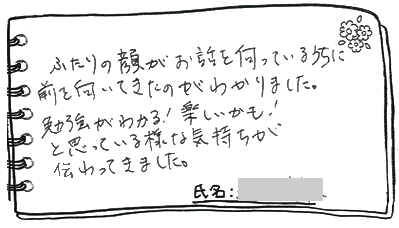 ふたりの顔がお話を伺っているうちに
前を向いてきたのがわかりました。
勉強がわかる!楽しいかも!
と思っている様な気持ちが
伝わってきました。
氏名: